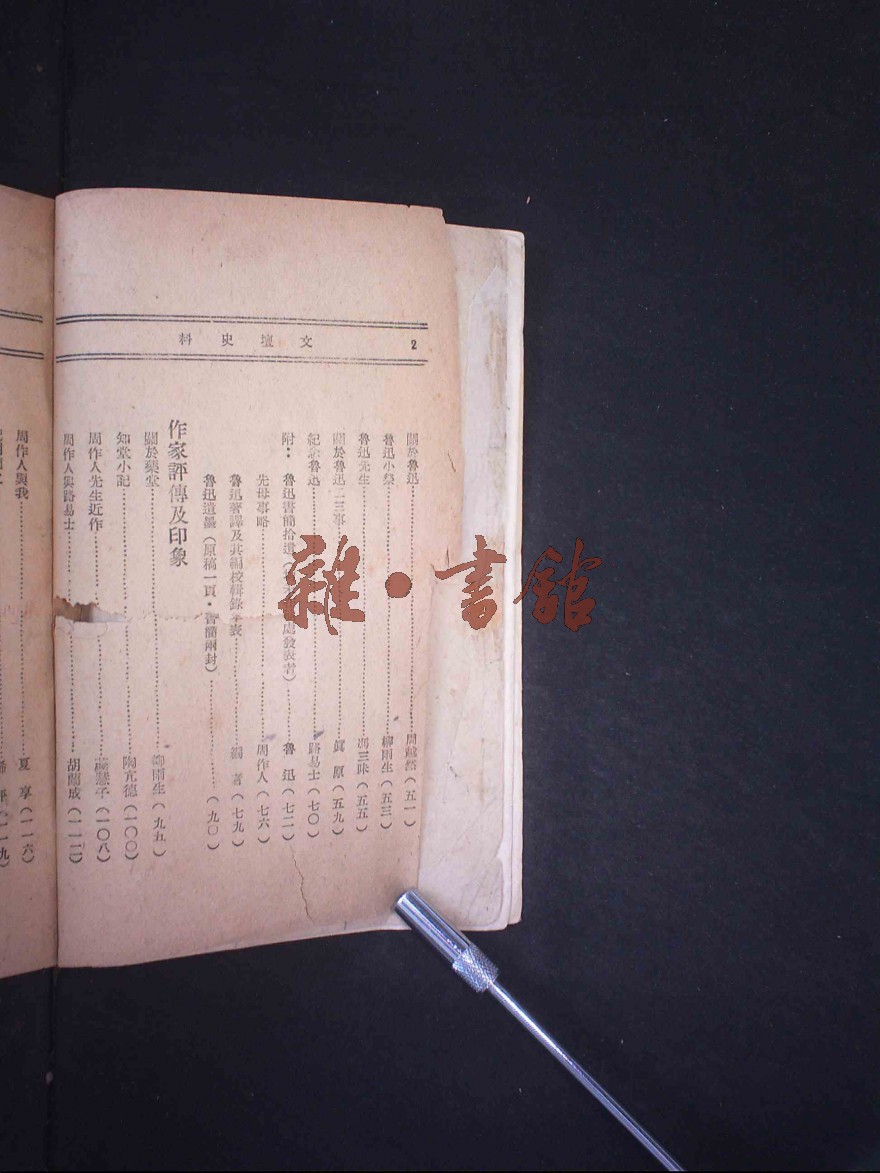 文壇史料
2
關於魯迅…………周越然(五一)
魯迅小祭…………柳雨生(五三)
魯迅先生…………馮三昧(五五)
關於魯迅二三事…………眞原(五九)
紀念魯迅…………路易士(七〇)
附：魯迅書簡拾遺(處發表者)…………魯迅(七二)
先母事略…………周作人(七六)
魯迅著譯及其編校輯錄年表…………編者(七九)
魯迅遺墨(原稿一頁・書簡兩封)…………(九〇)
作家評傳及印象
關於藥堂…………柳雨生(九五)
知堂小記…………陶亢德(一〇〇)
周作人先生近作…………慧子(一〇八)
周作人與路易士…………胡蘭成(一一二)
周作人與我…………夏享(一一六)
(一一九)
雜・書館